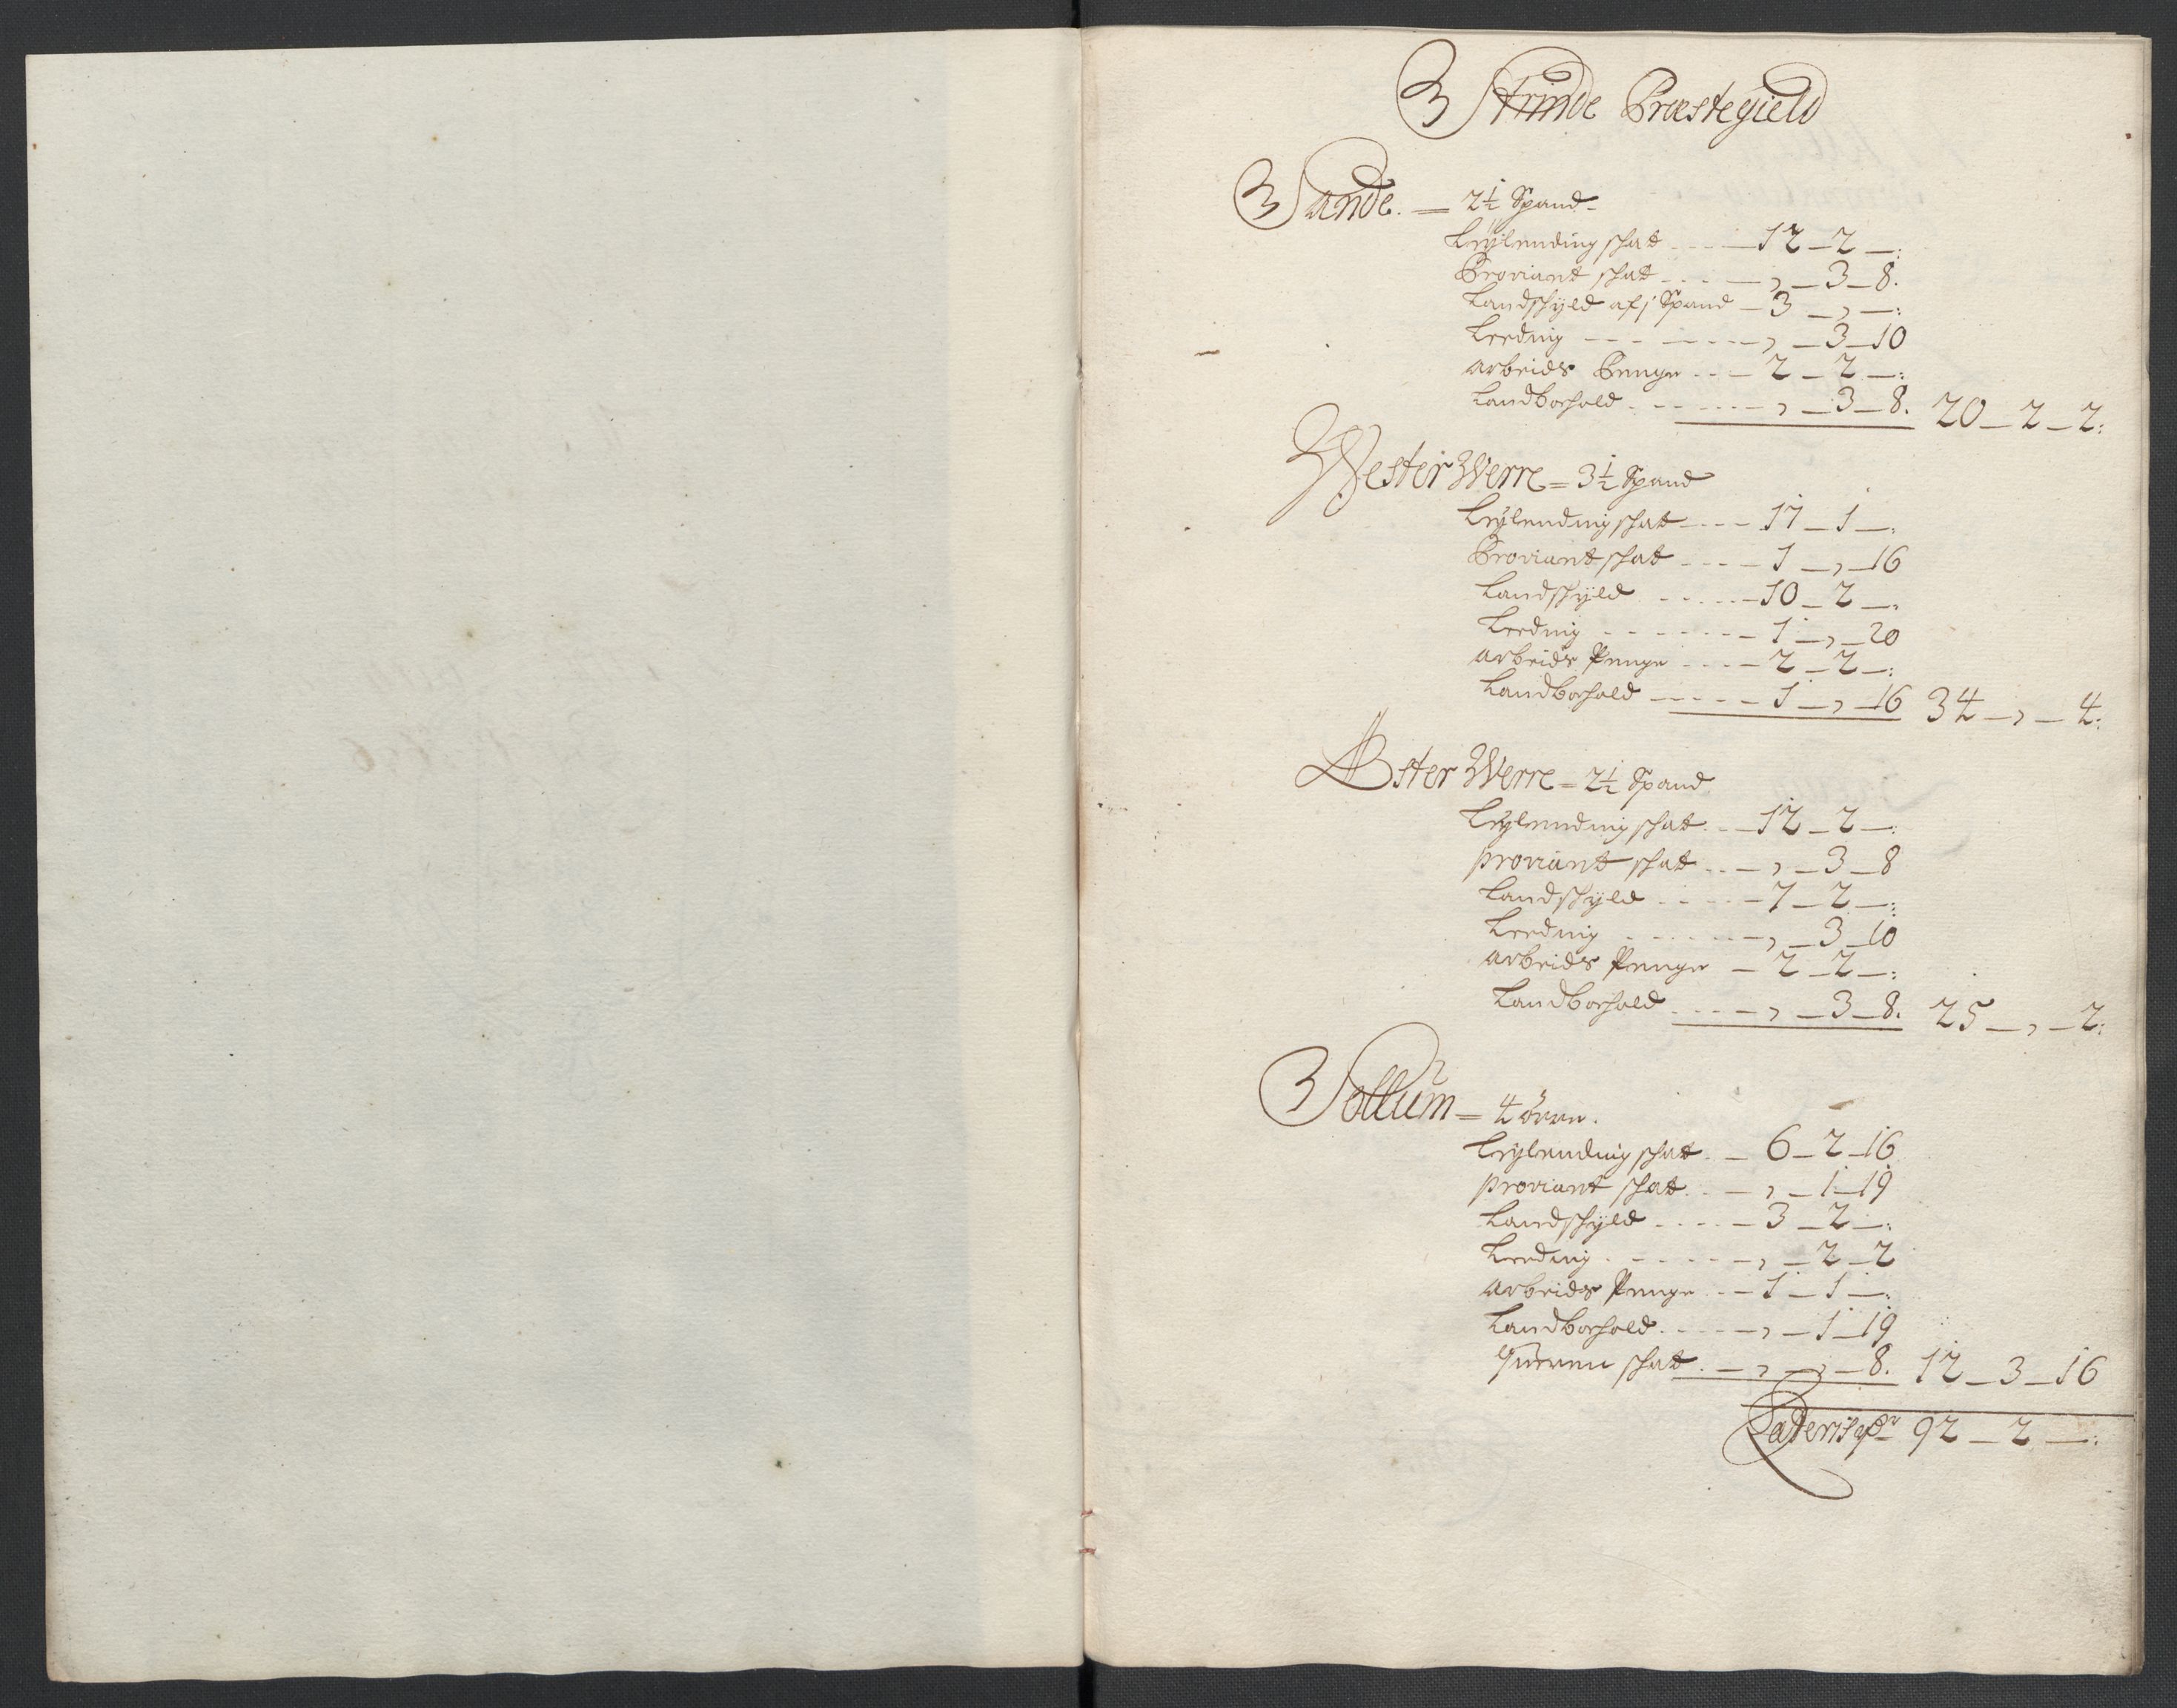 Strinde Præstegield
Sande. = 2½ Spand
Leylending schat - - - - 12 - 2 - :
Proviant schat - - - - , - 3 - 8.
Landschyld af j Spand - 3 - , - :
Leeding - - - - - - - , - 3 - 10
arbeids Penge - - - 2 - 2 - :
Landbohold - - - - - , - 3 - 8. 20 - 2 - 2:
Wester Werre = 3½ Spand
Leylending schat - - - - 17 - 1 - :
Proviant schat - - - - 1 - , - 16
Landschyld - - - - - 10 - 2 - :
Leeding - - - - - - - 1 - , - 20
arbeids Penge - - - - 2 - 2 - :
Landbohold - - - - - 1 - , - 16 34 - , - 4:
Øster Werre = 2½ Spand
Leylending schat - - - 12 - 2 - :
proviant schat - - - , - 3 - 8
Landschyld - - - - - 7 - 2 - :
Leeding - - - - - - , - 3 - 10
arbeids Penge - 2 - 2 - :
Landbohold - - - - , - 3 - 8. 25 - , - 2:
Sollum = 4 ører.
Leylending schat - - 6 - 2 - 16
proviant schat - - - , - 1 - 19
Landschyld - - - - 3 - 2 - :
Leeding - - - - - - , - 2 - 2
arbeids Penge - - 1 - 1 - :
Landbohold - - - - , - 1 - 19
Querne schat - - , - , - 8. 12 - 3 - 16
Lateris 92 - 2 - :